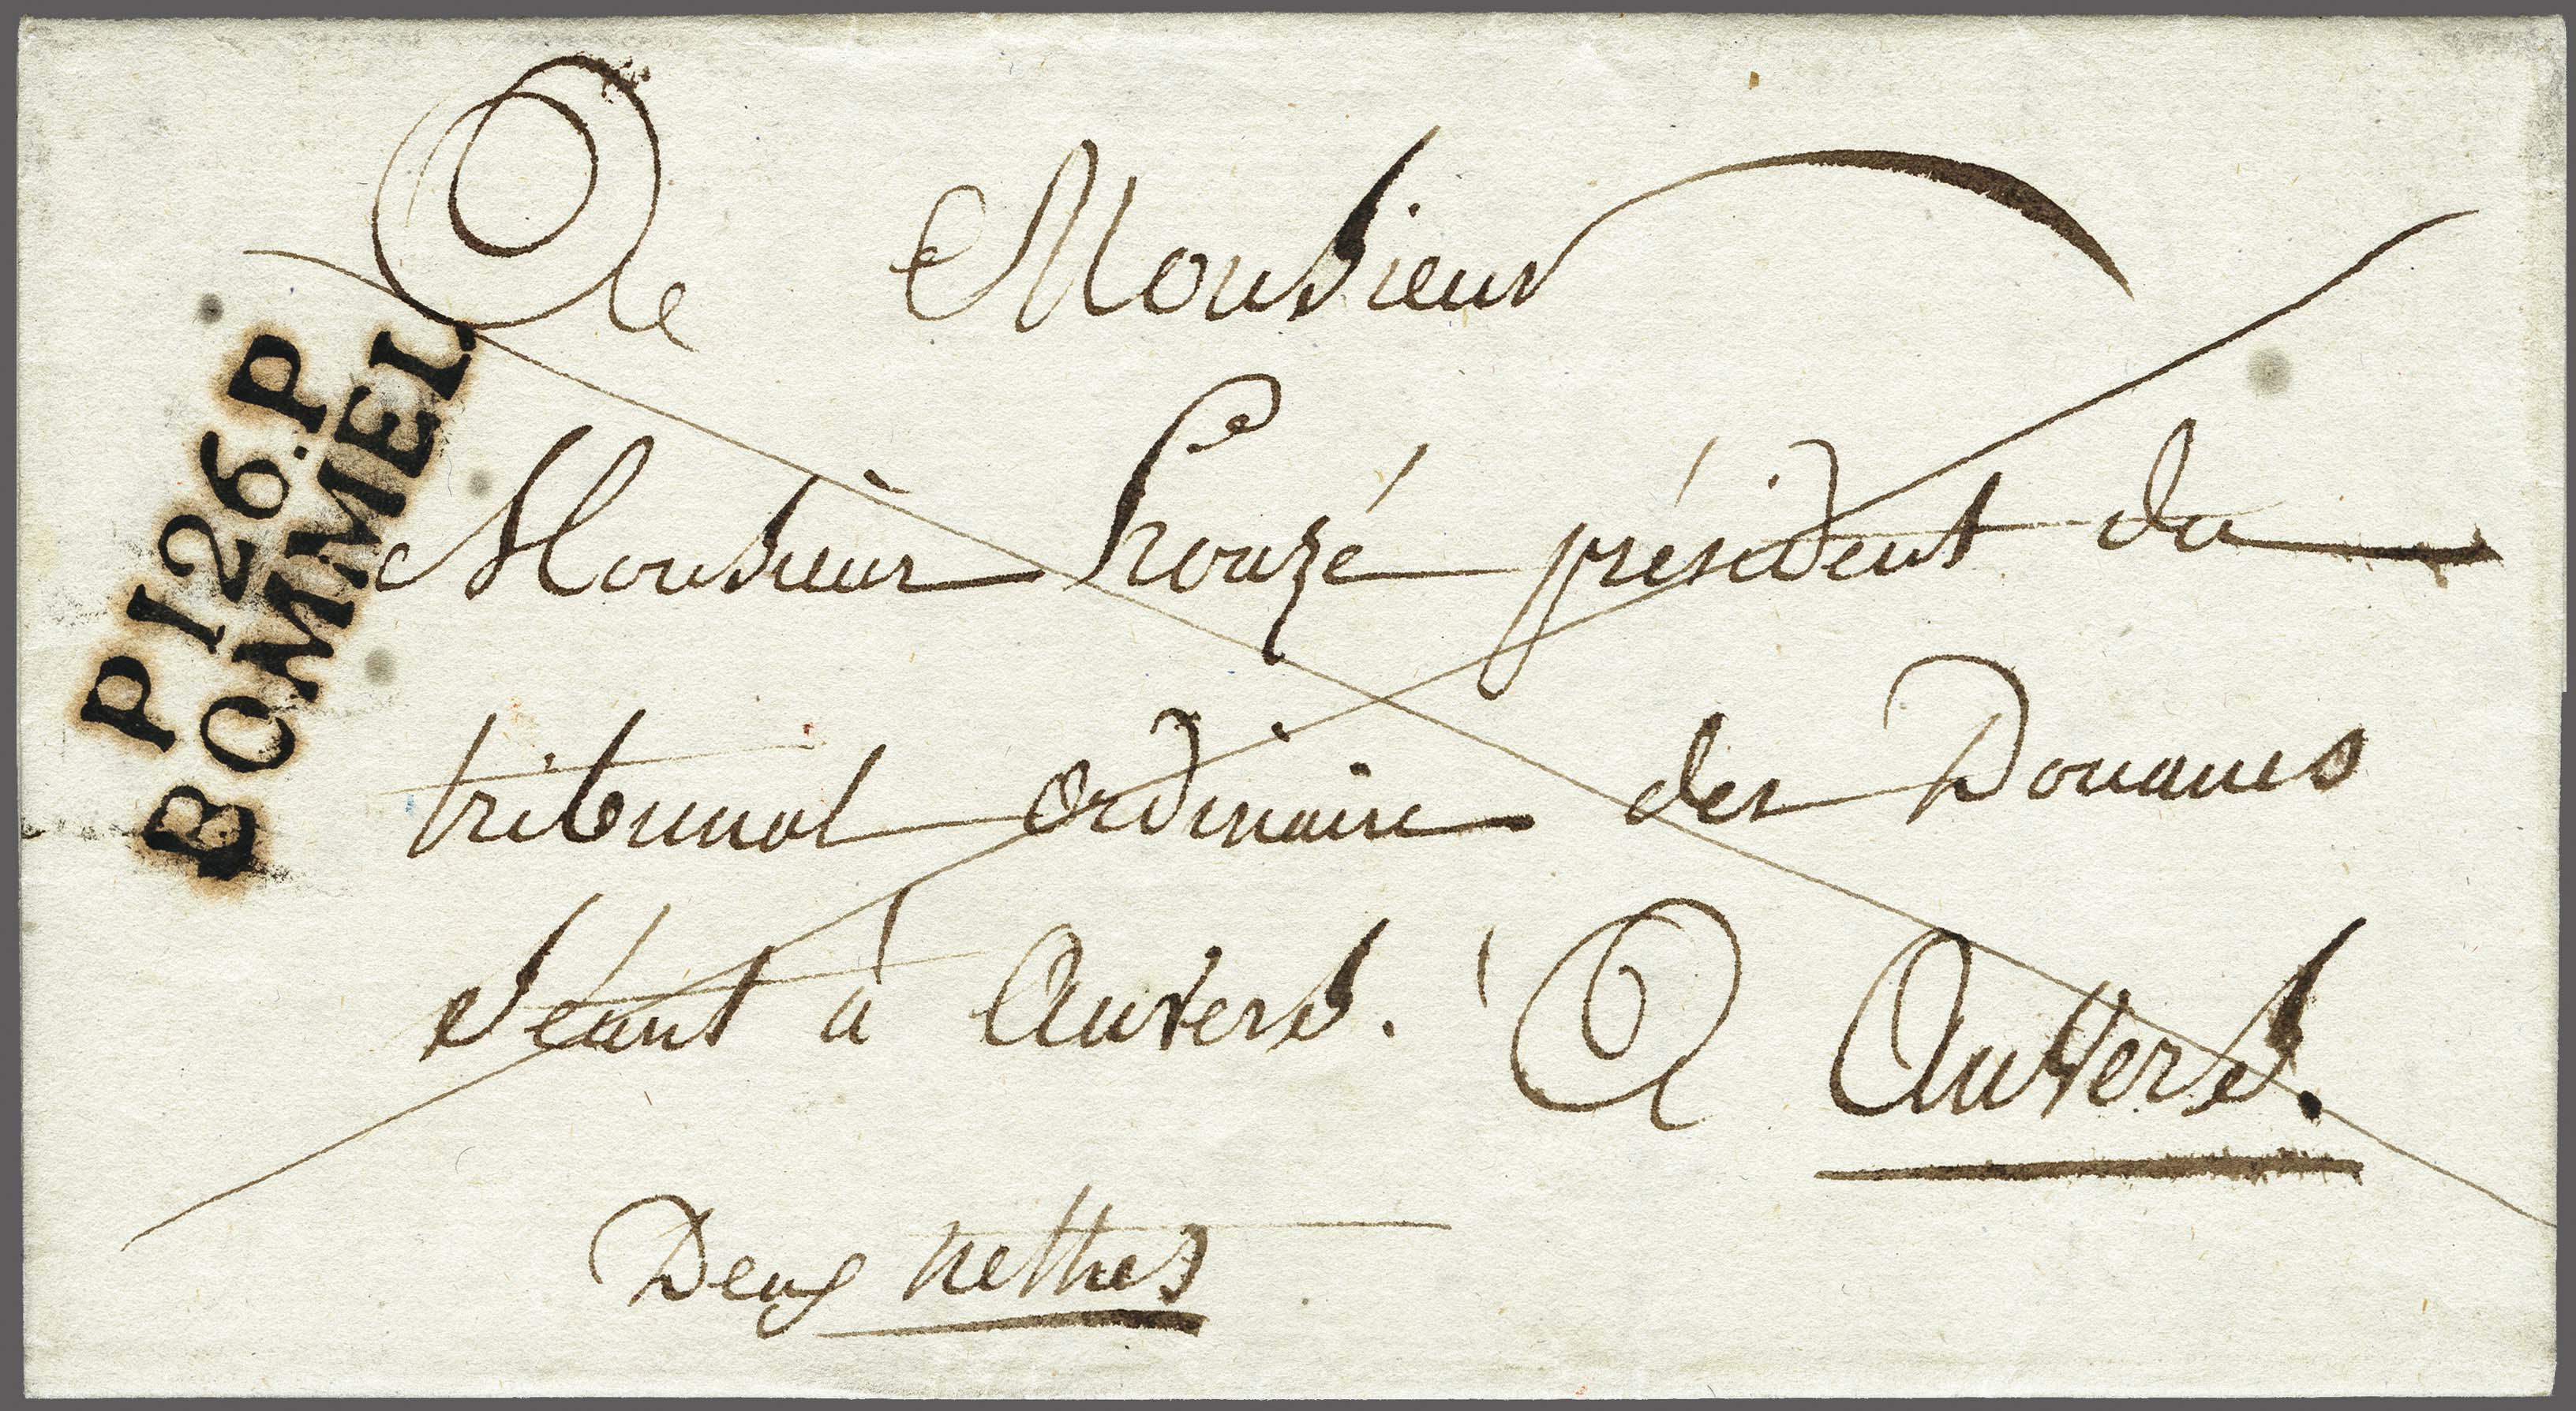 P126P
BOMMEL
A Monsieur
Monsieur président du
tribunal ordinaire des Douanes
Séant à Anvers. A Anvers.
Deux nethes